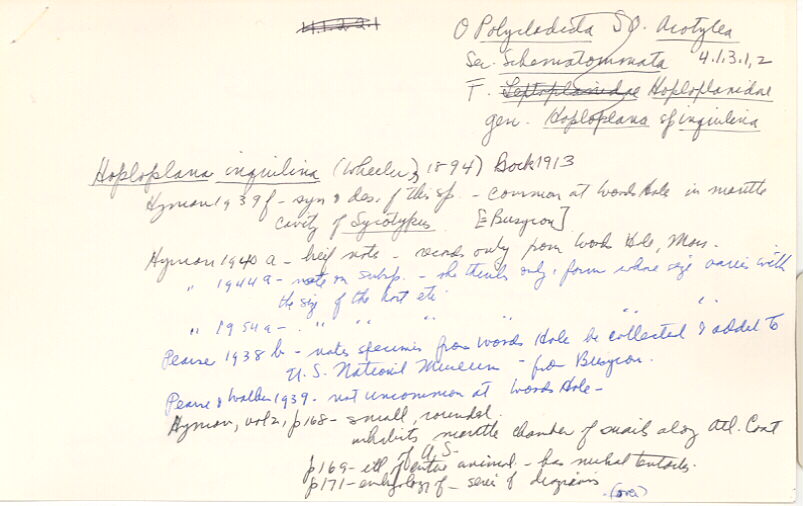 4.1.2.2.1
O Polycladida SO. Acotylea
Sec. Schematommata 4.1.3.1,2
F. Leptoplanidae Hoploplanidae
gen. Hoploplana sp inquilina
Hoploplana inquilina (Wheeler, 1894) Bock 1913
Hyman 1939f - syn & des. of this sp. - common at Woods Hole in mantle
cavity of Sycotypus [= Busycon]
Hyman 1940a - brief note - records only from Woods Hole, Mass.
" 1944a - note on subsp. - she thinks only 1 form whose size varies with
the size of the host etc
" 1954a - " " " " "
Pearse 1938b - notes specimens from Woods Hole he collected & added to
U.S. National Museum - from Busycon.
Pearse & Walker 1939 - not uncommon at Woods Hole -
Hyman, vol 2, p168 - small, rounded.
inhabits mantle chamber of snails along Atl. Coast
of U.S.
p169 - ill. of entire animal - has nuchal tentacles.
p171 - embryology of - series of diagrams
(over)